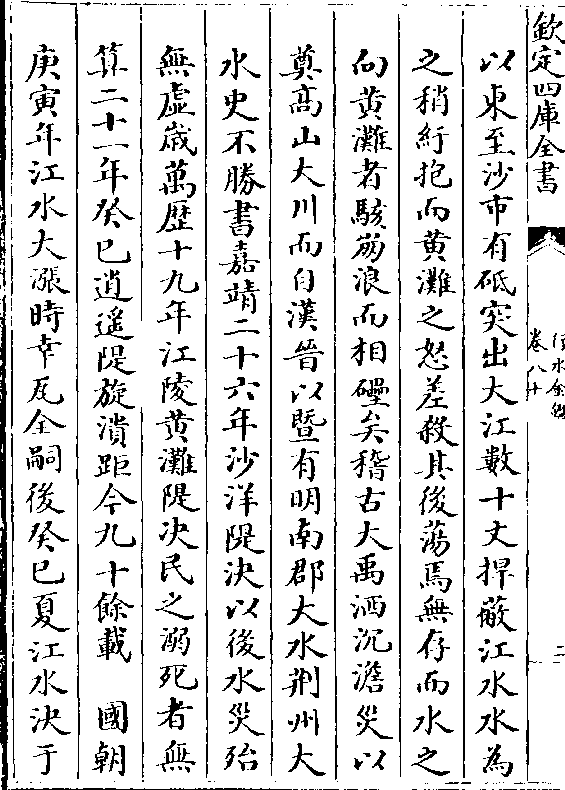 欽定四庫全書
卷八十
二
以東至沙市有砥突出大江數十丈捍蔽江水水為
之稍紆抱而黄灘之怒差殺其後蕩焉無存而水之
向黄灘者駭笏浪而相礨矣稽古大禹洒沉澹災以
奠高山大川而自漢晉以暨有明南郡大水荆州大
水史不勝書嘉靖二十六年沙洋隄決以後水災殆
無虚歳萬歴十九年江陵黄灘隄决民之溺死者無
算二十一年癸巳逍遥隄旋潰距今九十餘載 國朝
庚寅年江水大漲時幸瓦全嗣後癸巳夏江水決于